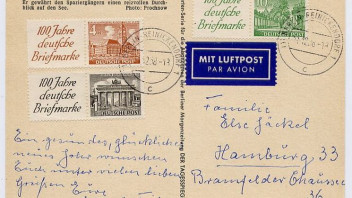 Er gewährt den Spaziergängern einen reizvollen Durch-
blick auf den See. Photo: Prochnow
100 Jahre
deutsche
Briefmarke
DEUTSCHE POST
100 Jahre
deutsche
Briefmarke
DEUTSCHE POST
BERLIN-REINICKENDORF 1
MIT LUFTPOST
PAR AVION
DER TAGESSPIEGEL
Ein gesundes, glückliches
neues Jahr wünschen
Euch unter vielen lieben
Grüßen Eure
Familie
Else Jäckel
Hamburg 33
Bramfelder Chaussee
36